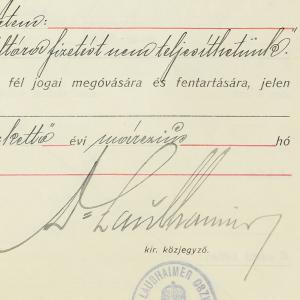 ltára fizetést nem teljesíthetünk."
fél jogai megóvására és fentartására, jelen
kettő" évi márczius hó
Dr Laubhaimer
kir. közjegyző.
LAUBHAIMER